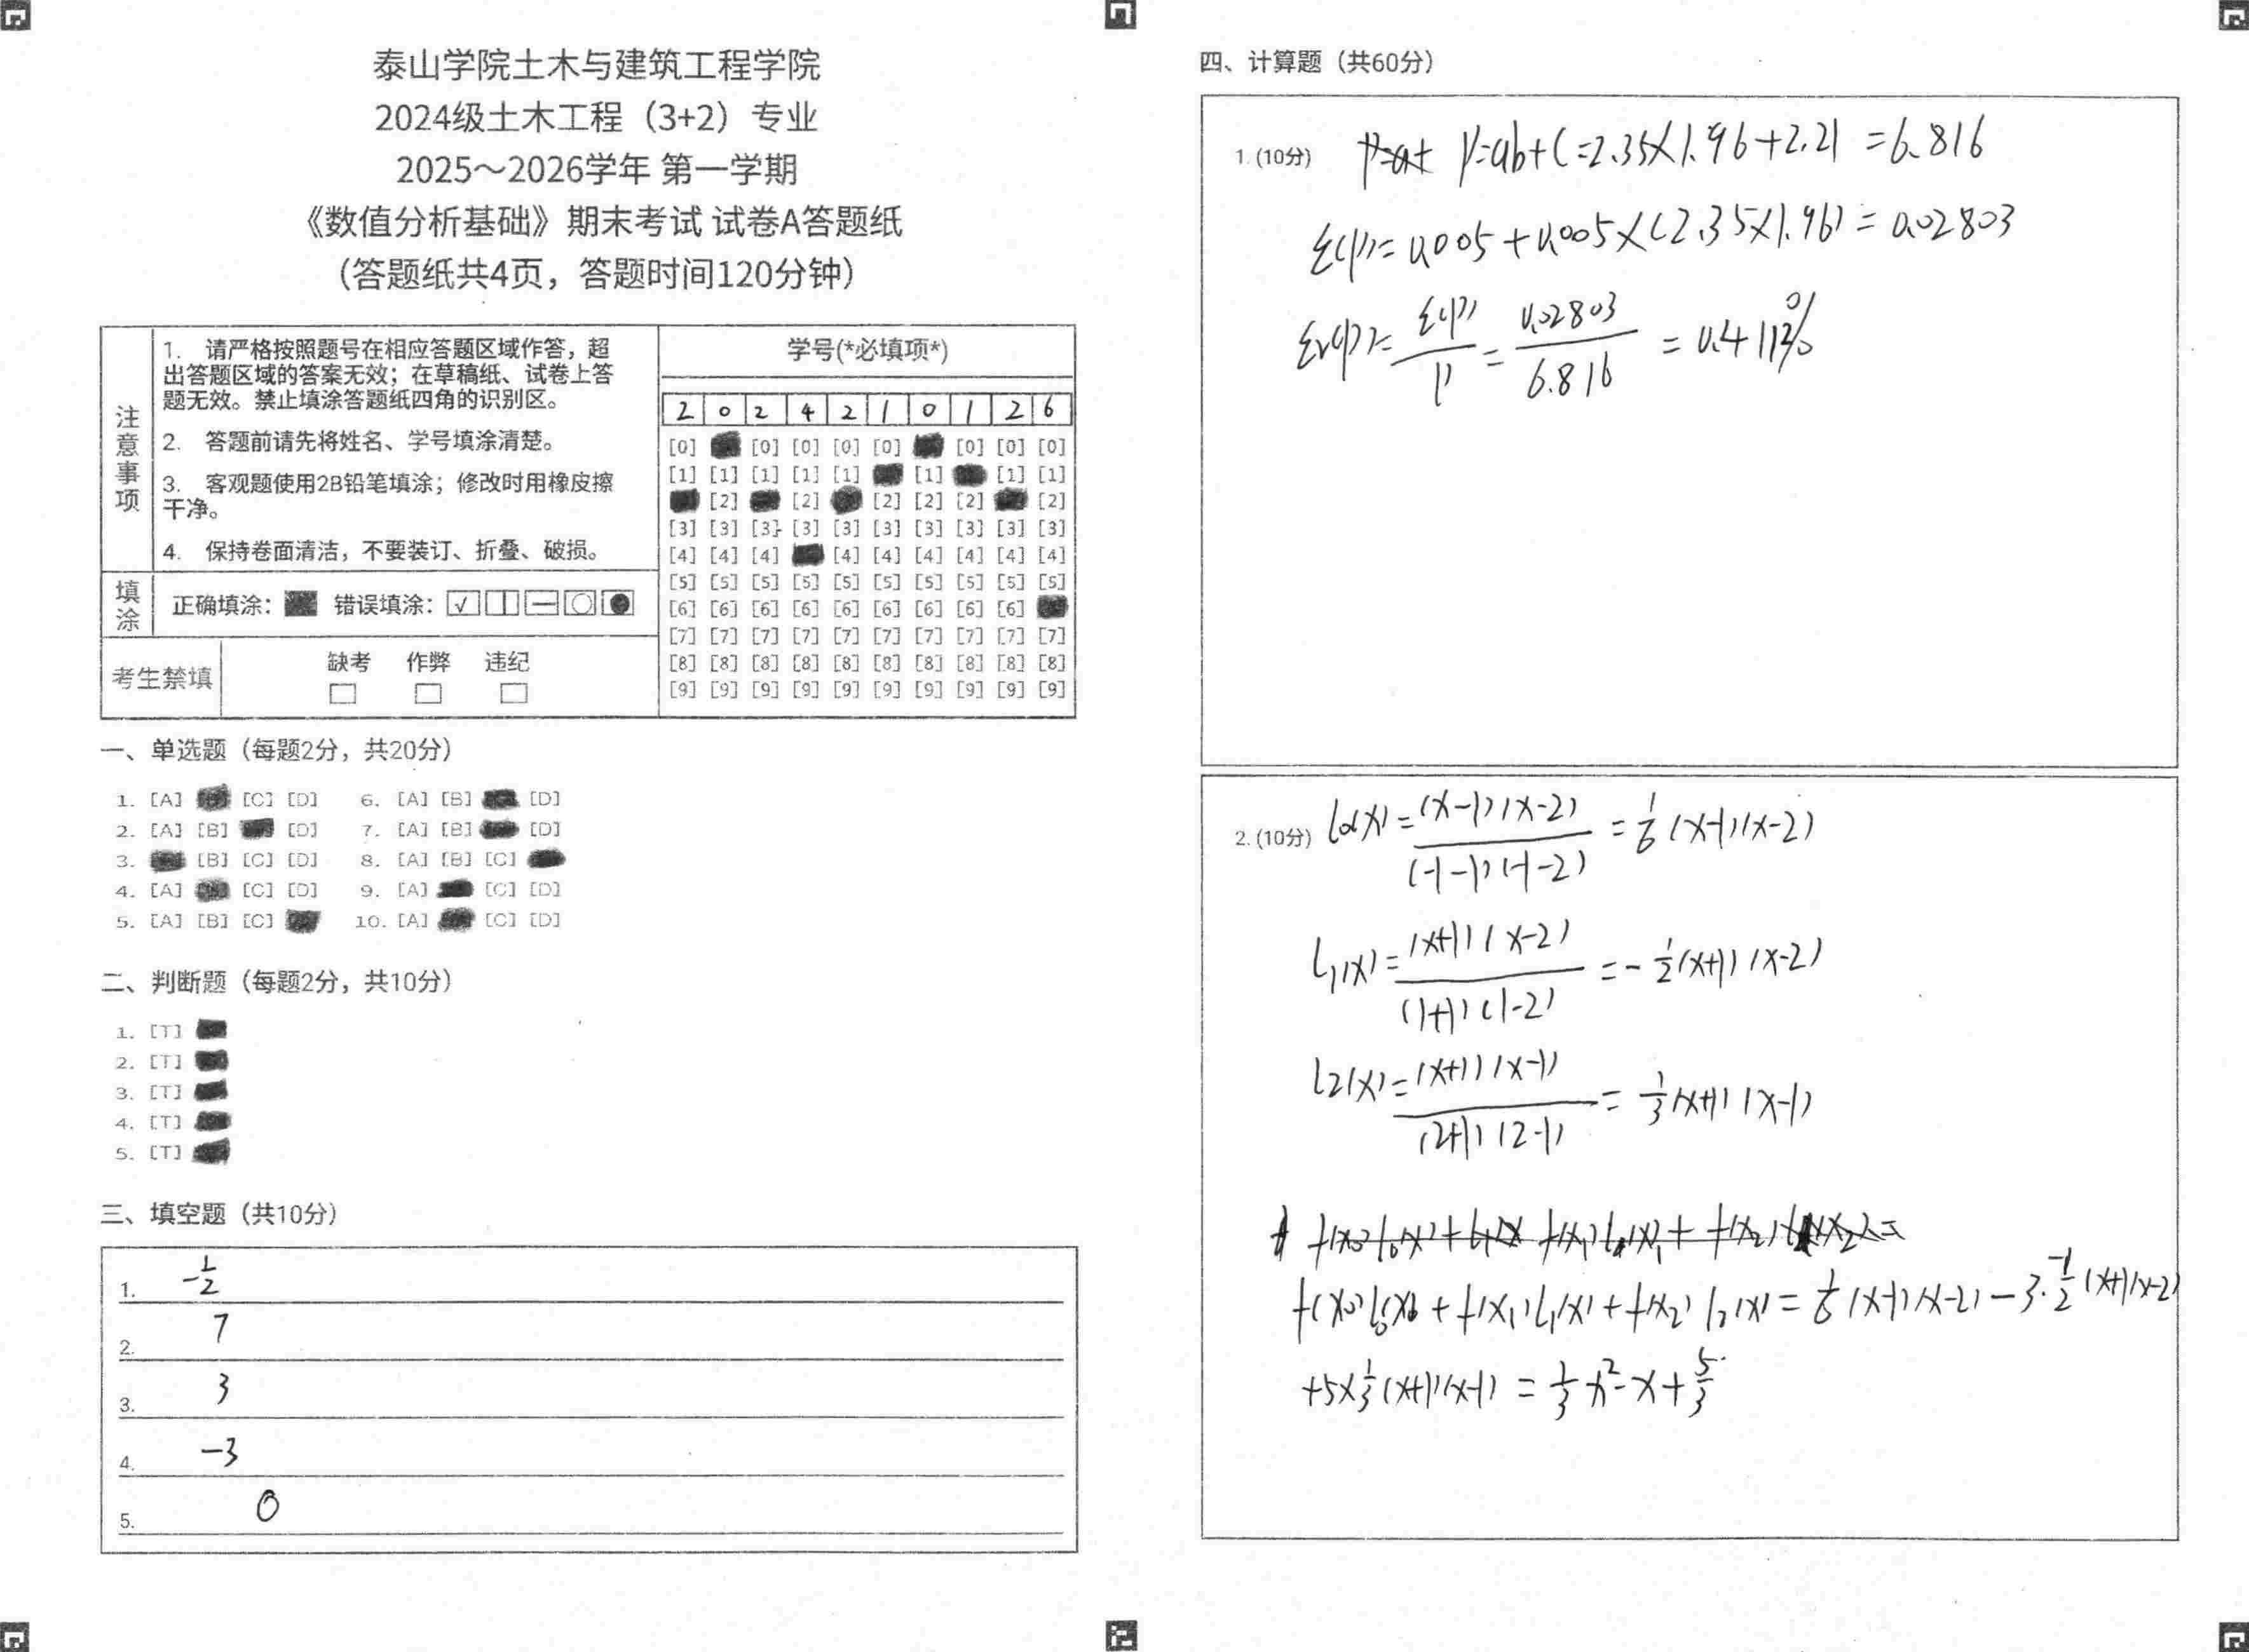 泰山学院土木与建筑工程学院
2024级土木工程（3+2）专业
2025～2026学年 第一学期
《数值分析基础》期末考试 试卷A答题纸
（答题纸共4页，答题时间120分钟）
注意事项
1. 请严格按照题号在相应答题区域作答，超
出答题区域的答案无效；在草稿纸、试卷上答
题无效。禁止填涂答题纸四角的识别区。
2. 答题前请先将姓名、学号填涂清楚。
3. 客观题使用2B铅笔填涂；修改时用橡皮擦
干净。
4. 保持卷面清洁，不要装订、折叠、破损。
填涂
正确填涂： 错误填涂：
考生禁填
缺考 作弊 违纪
学号(*必填项*)
2 0 2 4 2 1 0 1 2 6
[0] [0] [0] [0] [0] [0] [0] [0]
[1] [1] [1] [1] [1] [1] [1] [1]
[2] [2] [2] [2] [2] [2]
[3] [3] [3] [3] [3] [3] [3] [3] [3] [3]
[4] [4] [4] [4] [4] [4] [4] [4] [4]
[5] [5] [5] [5] [5] [5] [5] [5] [5] [5]
[6] [6] [6] [6] [6] [6] [6] [6] [6]
[7] [7] [7] [7] [7] [7] [7] [7] [7] [7]
[8] [8] [8] [8] [8] [8] [8] [8] [8] [8]
[9] [9] [9] [9] [9] [9] [9] [9] [9] [9]
一、单选题（每题2分，共20分）
1. [A] [C] [D] 6. [A] [B] [D]
2. [A] [B] [D] 7. [A] [B] [D]
3. [B] [C] [D] 8. [A] [B] [C]
4. [A] [C] [D] 9. [A] [C] [D]
5. [A] [B] [C] 10. [A] [C] [D]
二、判断题（每题2分，共10分）
1. [T]
2. [T]
3. [T]
4. [T]
5. [T]
三、填空题（共10分）
1. -1/2
2. 7
3. 3
4. -3
5. 0
四、计算题（共60分）
1. (10分) P=ab+C=2.35×1.96+2.21=6.816
ε(P)=0.005+0.005×(2.35×1.96)=0.02803
εr(P)=ε(P)/P=0.02803/6.816=0.4112%
2. (10分) l0(x)=(x-1)(x-2)/(-1-1)(-1-2)=1/6(x-1)(x-2)
l1(x)=(x+1)(x-2)/(1+1)(1-2)=-1/2(x+1)(x-2)
l2(x)=(x+1)(x-1)/(2+1)(2-1)=1/3(x+1)(x-1)
f(x0)l0(x)+f(x1)l1(x)+f(x2)l2(x)=1/6(x-1)(x-2)-3·-1/2(x+1)(x-2)
+5×1/3(x+1)(x-1)=1/3x²-x+5/3